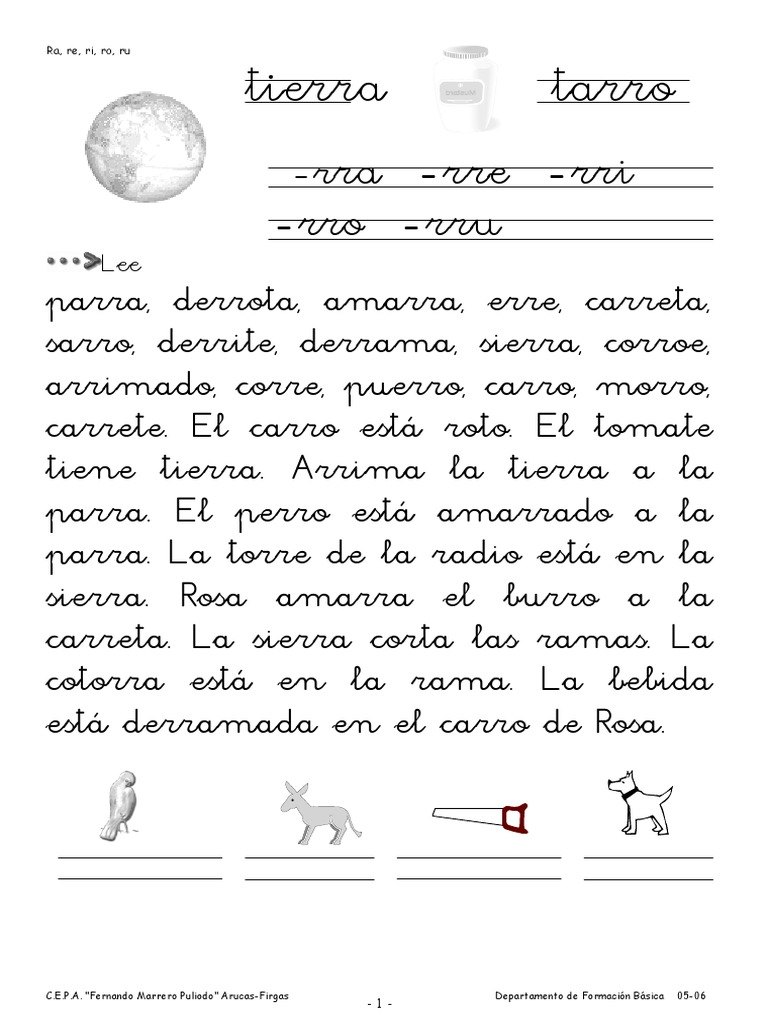 Ra, re, ri, ro, ru
tierra
tarro
Mustard
-rra -rre -rri
-rro -rru
Lee
parra, derrota, amarra, erre, carreta,
sarro, derrite, derrama, sierra, corroe,
arrimado, corre, puerro, carro, morro,
carrete. El carro está roto. El tomate
tiene tierra. Arrima la tierra a la
parra. El perro está amarrado a la
parra. La torre de la radio está en la
sierra. Rosa amarra el burro a la
carreta. La sierra corta las ramas. La
cotorra está en la rama. La bebida
está derramada en el carro de Rosa.
C.E.P.A. "Fernando Marrero Puliodo" Arucas-Firgas
- 1 -
Departamento de Formación Básica 05-06